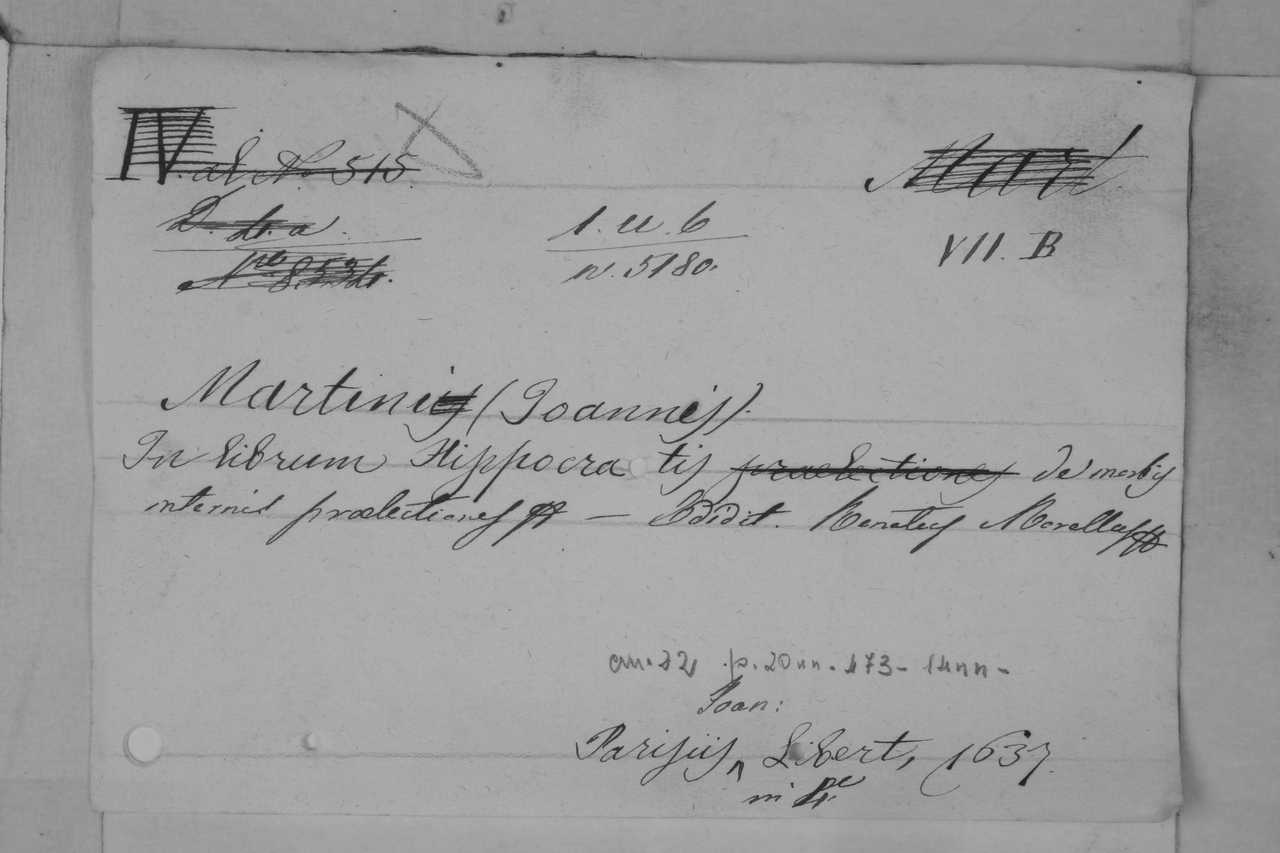 IV. al. No. 515.
D. d. a.
1. u. 6
Mart
No 8534.
n. 5180.
VII. B
Martini (Joannis).
In librum Hippocra tis praelectiones de morbis
internis praelectiones — Edidit. Renatus Morellus
cm. 22 p. 20 nn. 473 - 14 nn -
Joan:
Parisiis, Libert, 1637.
in 4o